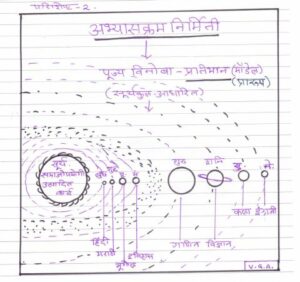 परिशिष्ट - २.
अभ्यासक्रम निर्मिती
पूज्य विनोबा - प्रतिमान (मॉडेल)
(प्रारूप)
(सूर्यकुल आधारित)
सूर्य
समाजोपयोगी
उत्पादक
कार्य
बुध शुक्र पृ मं
गुरु शनि यु. ने.
हिंदी
मराठी
भूगोल
इतिहास
गणित विज्ञान
कला इंग्रजी
V.G.A.